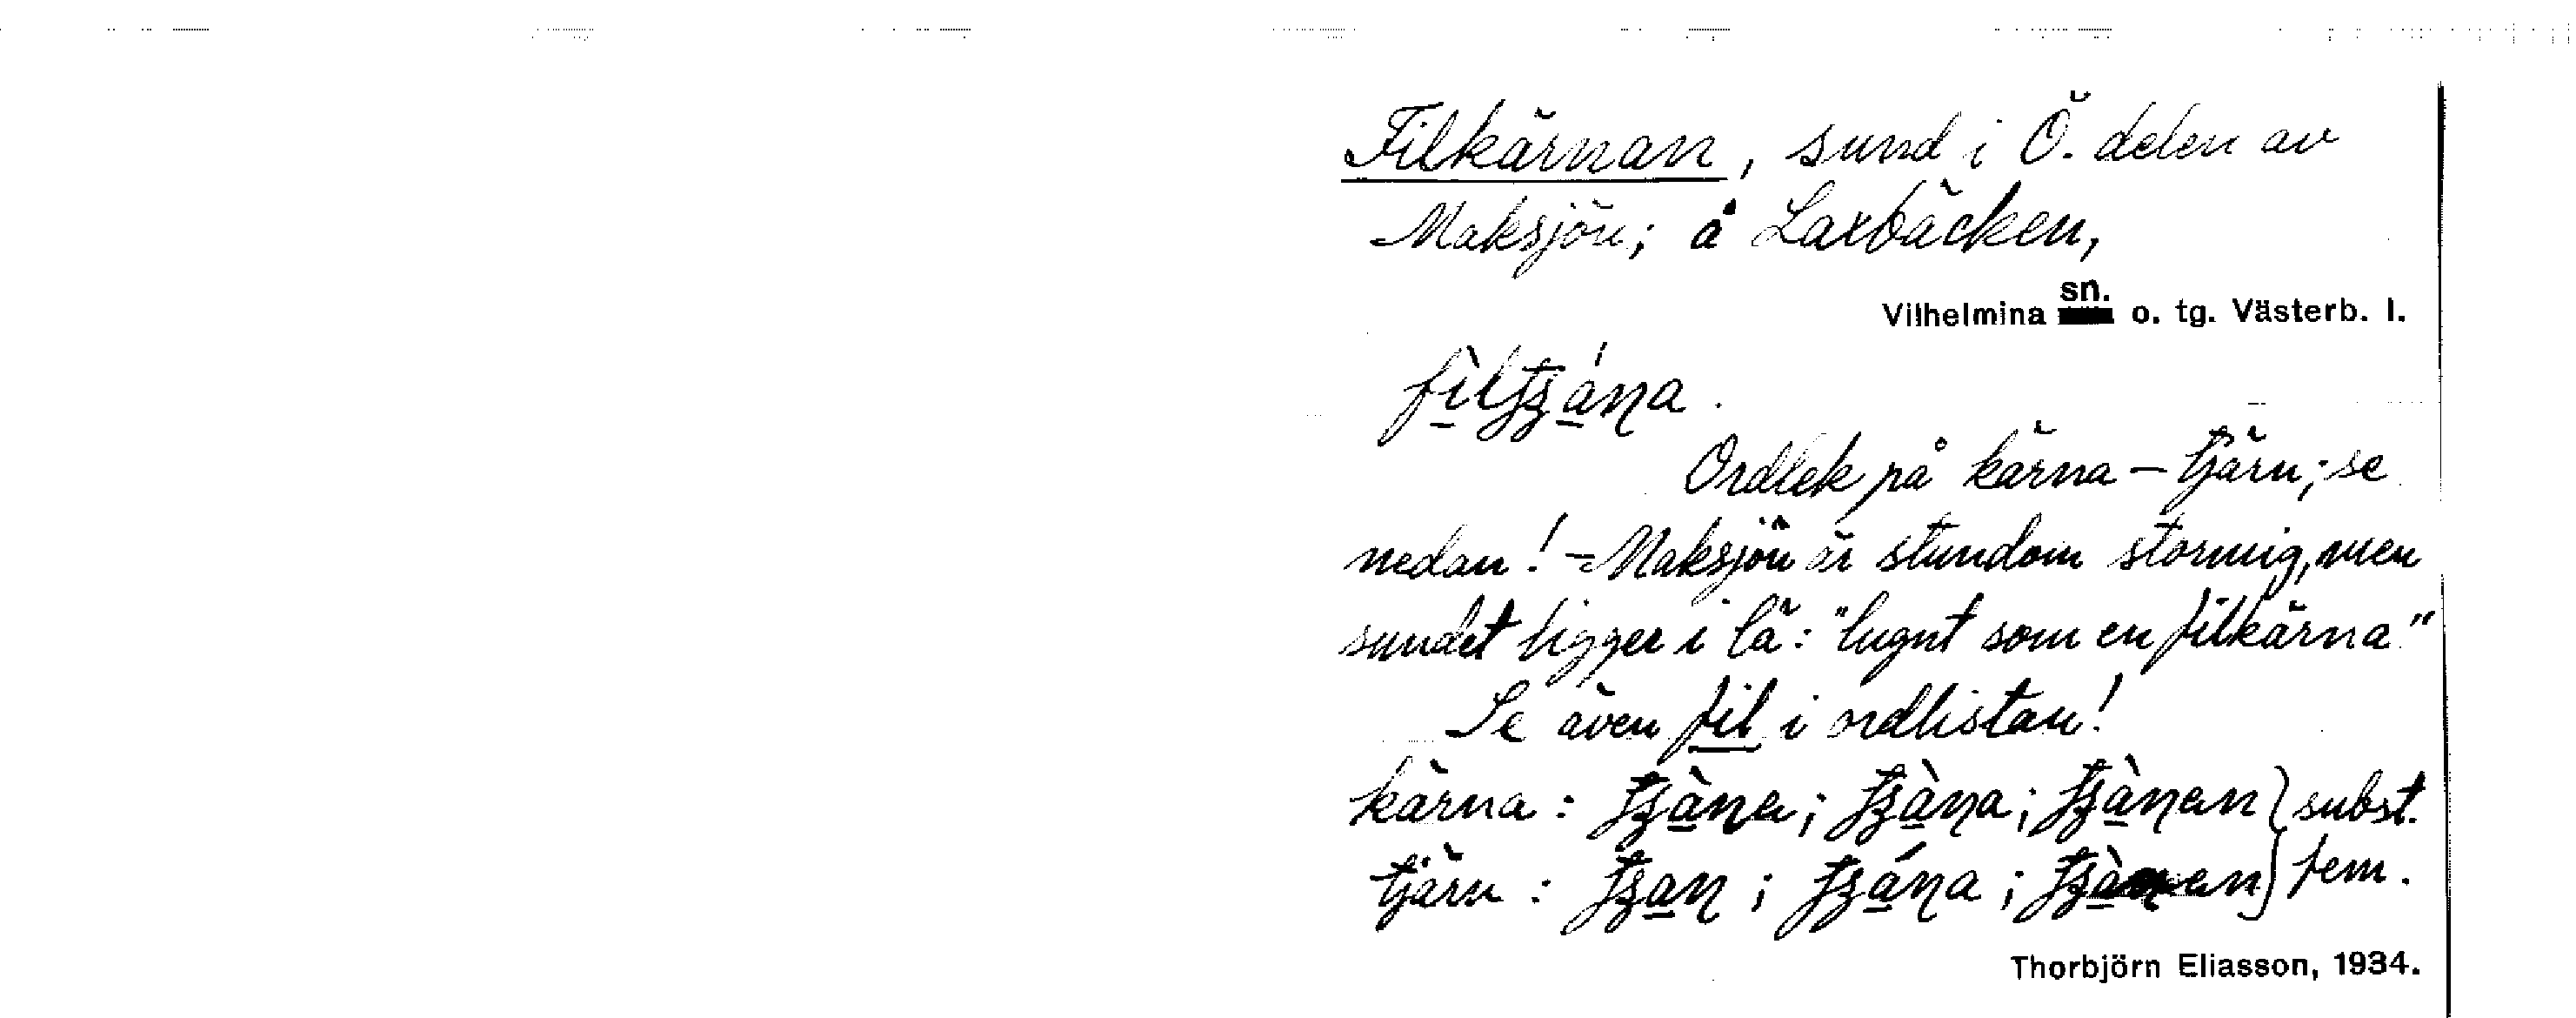 Filkärnan, sund i Ö. delen av
Maksjön; å Laxbäcken,
Vilhelmina sn. o. tg. Västerb. l.
Ordlek på kärna – tjärn; se
nedan! – Maksjön är stundom stormig, men
sundet ligger i lä: "lugnt som en filkärna."
Se även fil i ordlistan!
kärna : subst.
tjärn : fem.
Thorbjörn Eliasson, 1934.